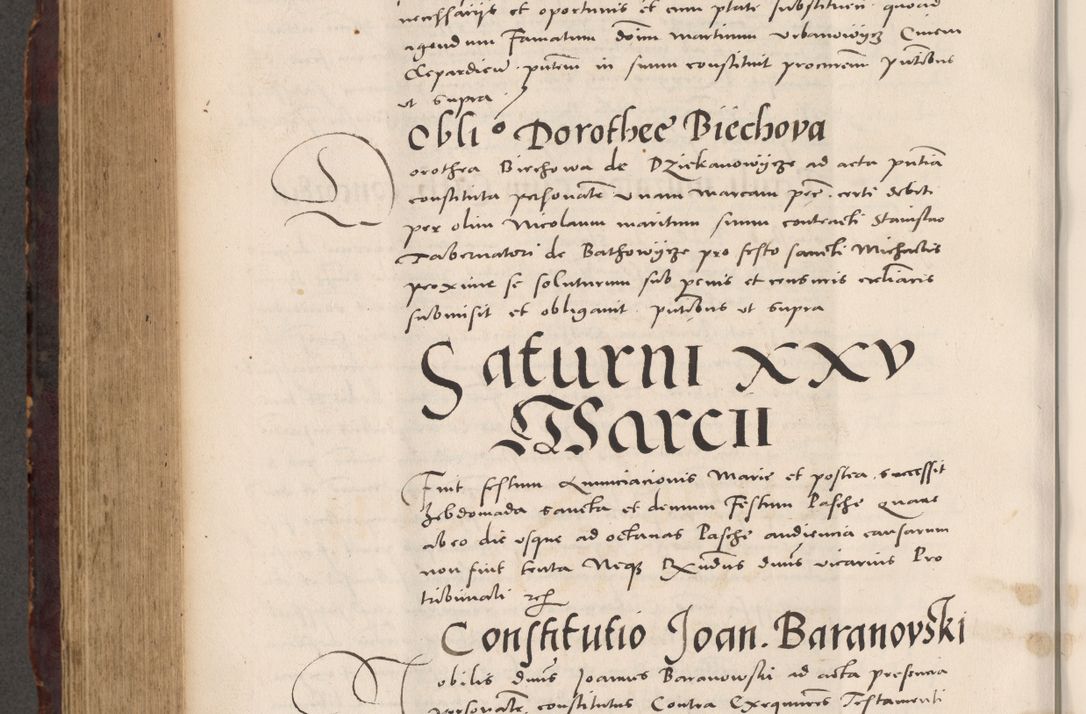 necessariis et oportunis et cum ptate substituen quoad
agendum Famatum dnm martinum Vrbanowÿcz Ciuem
Clepardien pntem in suum constituit procurem pntibus
ut supra
Obli° Dorothee Biechova
Dorothea Biechowa de Dziekanowÿcze ad acta pntia
constituta personate vnam marcam pec certi debiti
per olim Nicolaum maritum suum contracti Stanislao
Tabernatori de Bathowÿcze pro festo sancti Michaelis
proxime se soluturum sub penis et censuris ecliaris
submisit et obligauit pntibus ut supra
Saturni XXV
Marcii
Fuit festum Annunciacionis Marie et postea successit
hebdomada sancta et demum Festum Pasche quare
ab eo die vsque ad octauas Pasche audiencia causarum
non fuit tenta Neqz Rxndus dnus vicarius Pro
tribunali
Constitutio Joan. Baranovski
Nobilis dnus Joannes Baranowski ad acta presencia
personate constitutus Contra Exequutores Testamenti